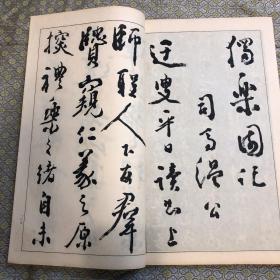 獨樂園記
司馬溫公
迂叟平日讀書上
師聖人下友群
賢窺仁義之原
探禮樂之緒自未